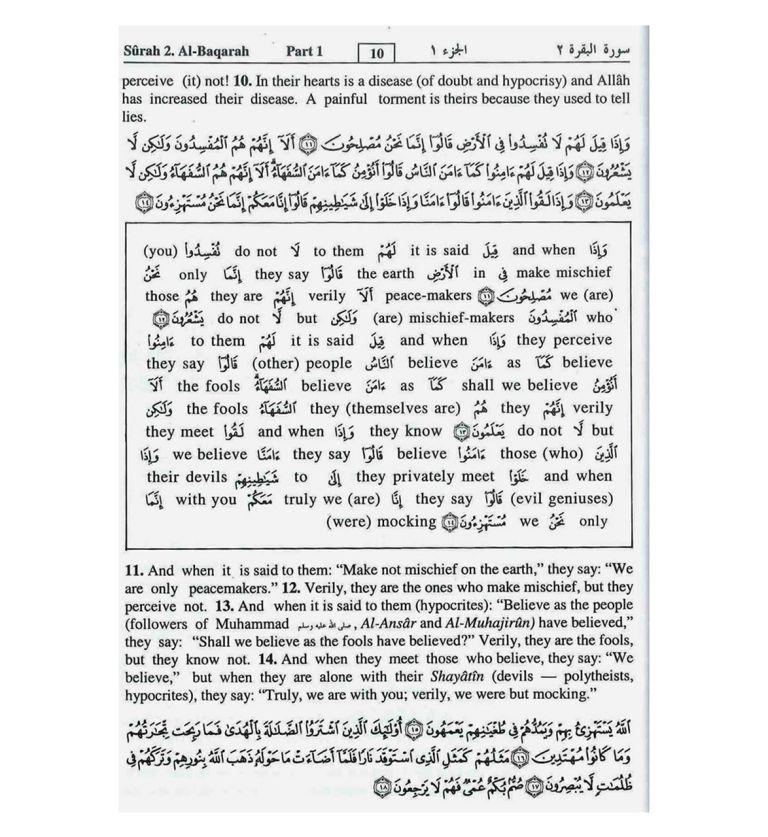 Sûrah 2. Al-Baqarah Part 1 10 الجزء ١ سورة البقرة ٢
perceive (it) not! 10. In their hearts is a disease (of doubt and hypocrisy) and Allâh
has increased their disease. A painful torment is theirs because they used to tell
lies.
وَإِذَا قِيلَ لَهُمْ لَا تُفْسِدُوا۟ فِى ٱلْأَرْضِ قَالُوٓا۟ إِنَّمَا نَحْنُ مُصْلِحُونَ ١١ أَلَآ إِنَّهُمْ هُمُ ٱلْمُفْسِدُونَ وَلَـٰكِن لَّا
يَشْعُرُونَ ١٢ وَإِذَا قِيلَ لَهُمْ ءَامِنُوا۟ كَمَآ ءَامَنَ ٱلنَّاسُ قَالُوٓا۟ أَنُؤْمِنُ كَمَآ ءَامَنَ ٱلسُّفَهَآءُ أَلَآ إِنَّهُمْ هُمُ ٱلسُّفَهَآءُ وَلَـٰكِن لَّا
يَعْلَمُونَ ١٣ وَإِذَا لَقُوا۟ ٱلَّذِينَ ءَامَنُوا۟ قَالُوٓا۟ ءَامَنَّا وَإِذَا خَلَوْا۟ إِلَىٰ شَيَـٰطِينِهِمْ قَالُوٓا۟ إِنَّا مَعَكُمْ إِنَّمَا نَحْنُ مُسْتَهْزِءُونَ ١٤
وَإِذَا and when قِيلَ it is said لَهُمْ to them لَا do not تُفْسِدُوا۟ (you)
make mischief فِى in ٱلْأَرْضِ the earth قَالُوٓا۟ they say إِنَّمَا only نَحْنُ
we (are) مُصْلِحُونَ ١١ peace-makers أَلَآ verily إِنَّهُمْ they are هُمُ those
who ٱلْمُفْسِدُونَ (are) mischief-makers وَلَـٰكِن but لَّا do not يَشْعُرُونَ ١٢
they perceive وَإِذَا and when قِيلَ it is said لَهُمْ to them ءَامِنُوا۟
believe كَمَآ as ءَامَنَ believe ٱلنَّاسُ (other) people قَالُوٓا۟ they say
أَنُؤْمِنُ shall we believe كَمَآ as ءَامَنَ believe ٱلسُّفَهَآءُ the fools أَلَآ
verily إِنَّهُمْ they هُمُ they (themselves are) ٱلسُّفَهَآءُ the fools وَلَـٰكِن
but لَّا do not يَعْلَمُونَ ١٣ they know وَإِذَا and when لَقُوا۟ they meet
ٱلَّذِينَ those (who) ءَامَنُوا۟ believe قَالُوٓا۟ they say ءَامَنَّا we believe وَإِذَا
and when خَلَوْا۟ they privately meet إِلَىٰ to شَيَـٰطِينِهِمْ their devils
(evil geniuses) قَالُوٓا۟ they say إِنَّا truly we (are) مَعَكُمْ with you إِنَّمَا
only نَحْنُ we مُسْتَهْزِءُونَ ١٤ (were) mocking
11. And when it is said to them: “Make not mischief on the earth,” they say: “We
are only peacemakers.” 12. Verily, they are the ones who make mischief, but they
perceive not. 13. And when it is said to them (hypocrites): “Believe as the people
(followers of Muhammad صلى الله عليه وسلم, Al-Ansâr and Al-Muhajirûn) have believed,”
they say: “Shall we believe as the fools have believed?” Verily, they are the fools,
but they know not. 14. And when they meet those who believe, they say: “We
believe,” but when they are alone with their Shayâtîn (devils — polytheists,
hypocrites), they say: “Truly, we are with you; verily, we were but mocking.”
ٱللَّهُ يَسْتَهْزِئُ بِهِمْ وَيَمُدُّهُمْ فِى طُغْيَـٰنِهِمْ يَعْمَهُونَ ١٥ أُو۟لَـٰٓئِكَ ٱلَّذِينَ ٱشْتَرَوُا۟ ٱلضَّلَـٰلَةَ بِٱلْهُدَىٰ فَمَا رَبِحَت تِّجَـٰرَتُهُمْ
وَمَا كَانُوا۟ مُهْتَدِينَ ١٦ مَثَلُهُمْ كَمَثَلِ ٱلَّذِى ٱسْتَوْقَدَ نَارًا فَلَمَّآ أَضَآءَتْ مَا حَوْلَهُۥ ذَهَبَ ٱللَّهُ بِنُورِهِمْ وَتَرَكَهُمْ فِى
ظُلُمَـٰتٍ لَّا يُبْصِرُونَ ١٧ صُمٌّۢ بُكْمٌ عُمْىٌ فَهُمْ لَا يَرْجِعُونَ ١٨